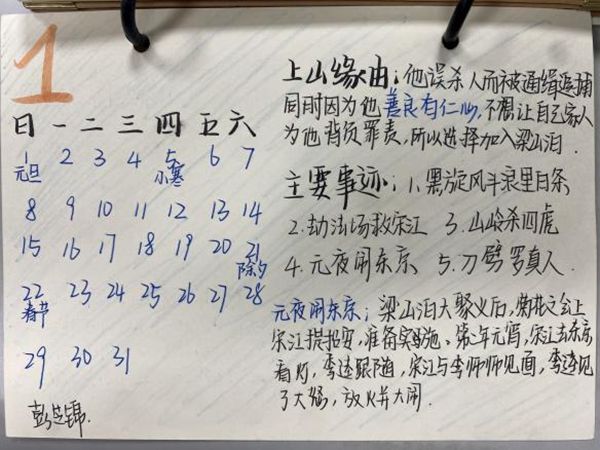 1
日 一 二 三 四 五 六
1 2 3 4 5 6 7
元旦 小寒
8 9 10 11 12 13 14
15 16 17 18 19 20 21
除夕
22 23 24 25 26 27 28
春节
29 30 31
彭芝锦.
上山缘由:他误杀人而被通缉追捕
同时因为他善良有仁心,不想让自己家人
为他背负罪责,所以选择加入梁山泊.
主要事迹:1.黑旋风斗浪里白条
2.劫法场救宋江 3.山岭杀四虎
4.元夜闹东京 5.刀劈罗真人.
元夜闹东京;梁山泊大聚义后,菊花之会上
宋江提招安,准备实施、第二年元宵,宋江去东京
看灯,李逵跟随,宋江与李师师见面,李逵见
了大怒,放火并大闹.